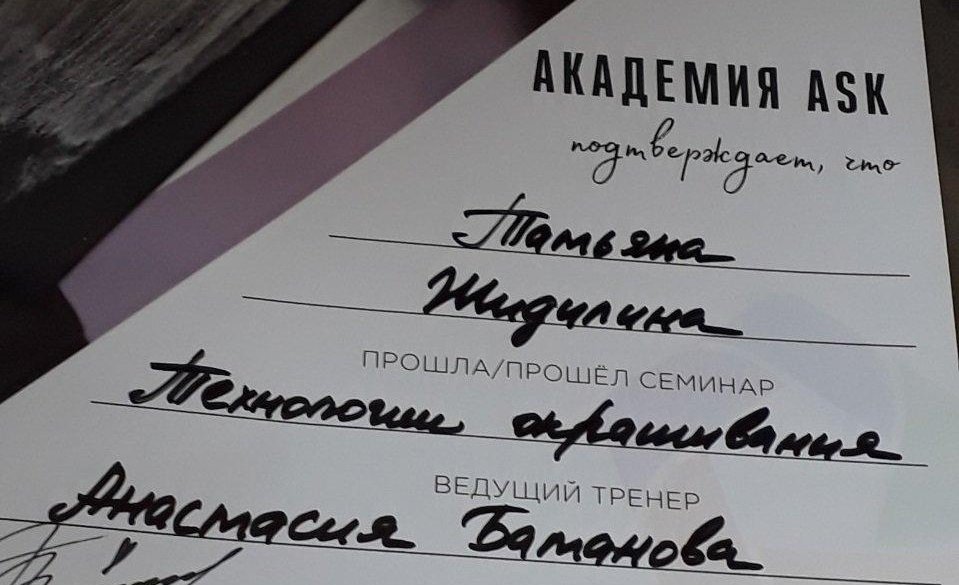 АКАДЕМИЯ ASK
подтверждает, что
Татьяна
Жидилина
ПРОШЛА/ПРОШЁЛ СЕМИНАР
Технологии окрашивания
ВЕДУЩИЙ ТРЕНЕР
Анастасия Баманова